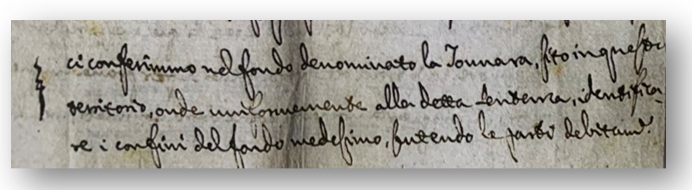 ci conferimmo nel fondo denominato la Tonnara, sito in questo
territorio, onde uniformemente alla detta sentenza, identifica-
re i confini del fondo medesimo, sentendo le parti debitam.